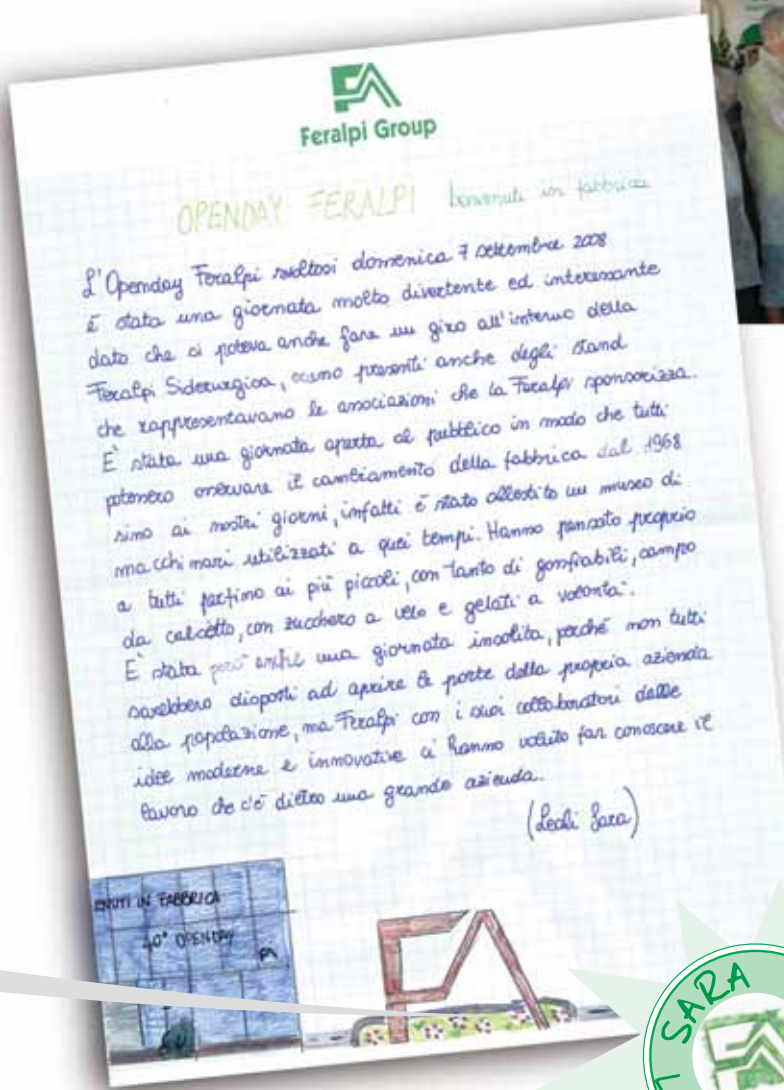 Feralpi Group
OPENDAY FERALPI benvenuti in fabbrica
L'Openday Feralpi svoltosi domenica 7 settembre 2008
è stata una giornata molto divertente ed interessante
dato che si poteva anche fare un giro all'interno della
Feralpi Siderurgica, erano presenti anche degli stand
che rappresentavano le associazioni che la Feralpi sponsorizza.
È stata una giornata aperta al pubblico in modo che tutti
potessero osservare il cambiamento della fabbrica dal 1968
sino ai nostri giorni, infatti è stato allestito un museo di
macchinari utilizzati a quei tempi. Hanno pensato proprio
a tutti perfino ai più piccoli, con tanto di gonfiabili, campo
da calcetto, con zucchero a velo e gelati a volontà.
È stata però anche una giornata insolita, perché non tutti
sarebbero disposti ad aprire le porte della propria azienda
alla popolazione, ma Feralpi con i suoi collaboratori dalle
idee moderne e innovative ci hanno voluto far conoscere il
lavoro che c'è dietro una grande azienda.
(Leali Sara)
ENUTI IN FABBRICA
40° OPENDAY
SARA